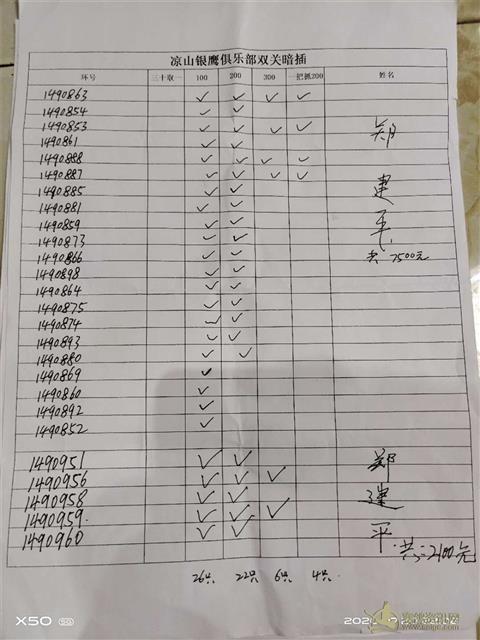 凉山银鹰俱乐部双关暗插
环号 三十取一 100 200 300 一把抓200 姓名
1490863 ✓ ✓ ✓ ✓
1490854 ✓ ✓
1490853 ✓ ✓ ✓ ✓ 郑
1490861 ✓ ✓
1490888 ✓ ✓ ✓ ✓
1490887 ✓ ✓ ✓ ✓ 建
1490885 ✓ ✓
1490881 ✓ ✓
1490859 ✓ ✓ 平
1490873 ✓ ✓
1490866 ✓ ✓ 共: 7500元
1490898 ✓ ✓
1490864 ✓ ✓
1490875 ✓ ✓
1490874 ✓ ✓
1490893 ✓ ✓
1490880 ✓ ✓
1490869 ✓
1490860 ✓
1490892 ✓
1490852 ✓
1490951 ✓ ✓ 郑
1490956 ✓ ✓ ✓
1490958 ✓ ✓ 建
1490959 ✓ ✓ ✓
1490960 ✓ ✓ 平
共:2100元
26只 22只 6只 4只
X50 5G